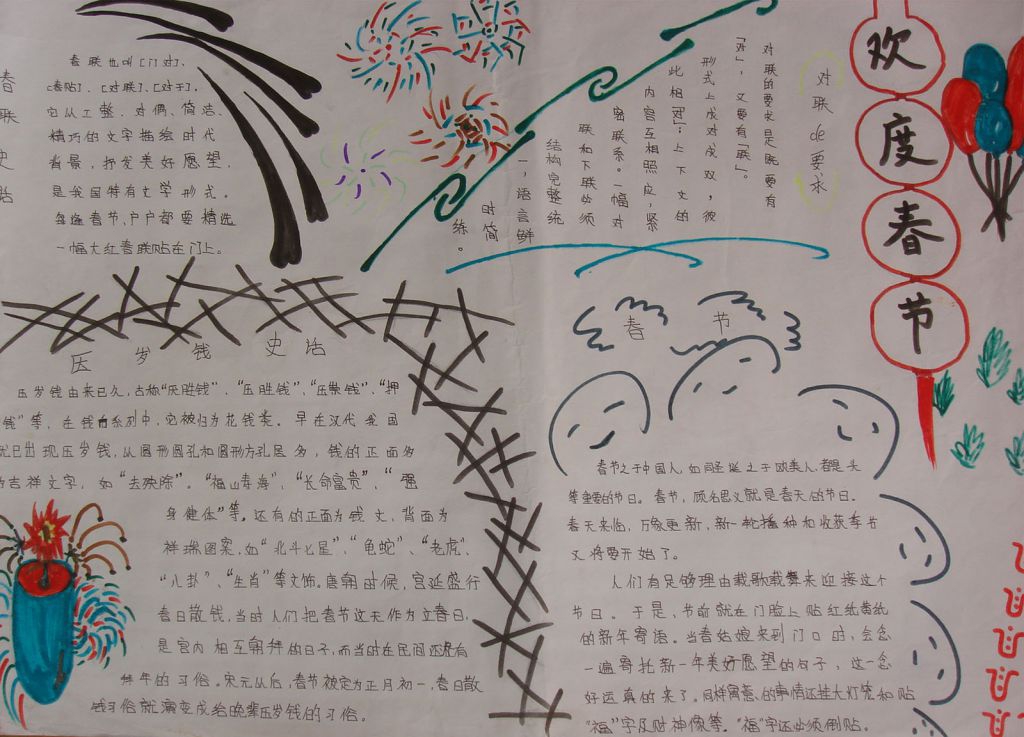 欢度春节
春联史话
春联也叫[门对]、
[春贴]、[对联]、[对子]，
它从工整、对偶、简洁、
精巧的文字描绘时代
背景，抒发美好愿望，
是我国特有文学形式。
每逢春节，户户都要精选
一幅大红春联贴在门上。
对联de要求
对联的要求是既要有
「对」，又要有「联」。
形式上成对成双，彼
此相「对」；上下文的
内容互相照应，紧
密联系。一幅对
联和下联必须
结构完整统
一，语言鲜
时简
练。
压岁钱史话
压岁钱由来已久，古称“厌胜钱”、“压胜钱”、“压祟钱”、“押
钱”等，在钱币系列中，它被归为花钱类。早在汉代我国
就已出现压岁钱，从圆形圆孔和圆形方孔居多，钱的正面多
为吉祥文字，如“去殃除”、“福山寿海”、“长命富贵”、“强
身健体”等。还有的正面为钱文，背面为
祥瑞图案，如“北斗七星”、“龟蛇”、“老虎”、
“八卦”、“生肖”等文饰。唐朝时候，宫廷盛行
春日散钱，当时人们把春节这天作为立春日，
是宫内相互朝拜的日子，而当时在民间还没有
拜年的习俗。宋元从后，春节被定为正月初一，春日散
钱习俗就演变成给晚辈压岁钱的习俗。
春节
春节之于中国人，如同圣诞之于欧美人，都是头
等重要的节日。春节，顾名思义就是春天的节日。
春天来临，万象更新，新一轮播种和收获季节
又将要开始了。
人们有足够理由载歌载舞来迎接这个
节日。于是，节前就在门脸上贴红纸黄纸
的新年寄语。当春姑娘来到门口时，会念
一遍寄托新一年美好愿望的句子，这一念
好运真的来了。同样寓意的事情还挂大灯笼和贴
“福”字及财神像等，“福”字还必须倒贴。